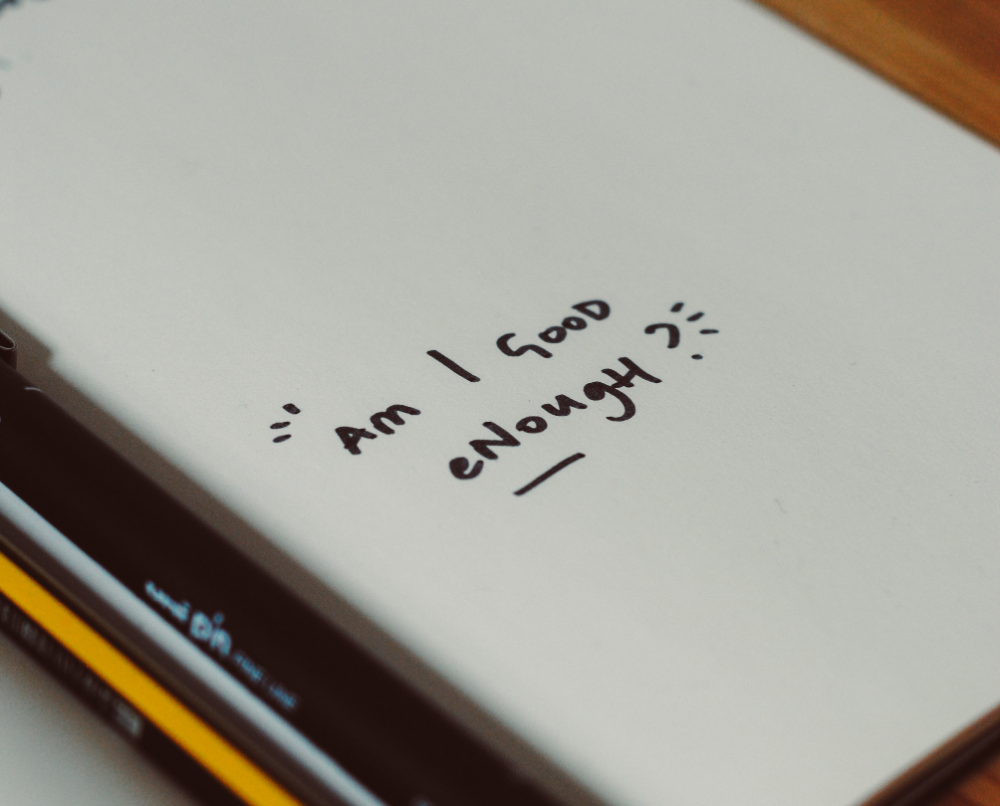 Am I GOOD
eNougH?
uni
PIN